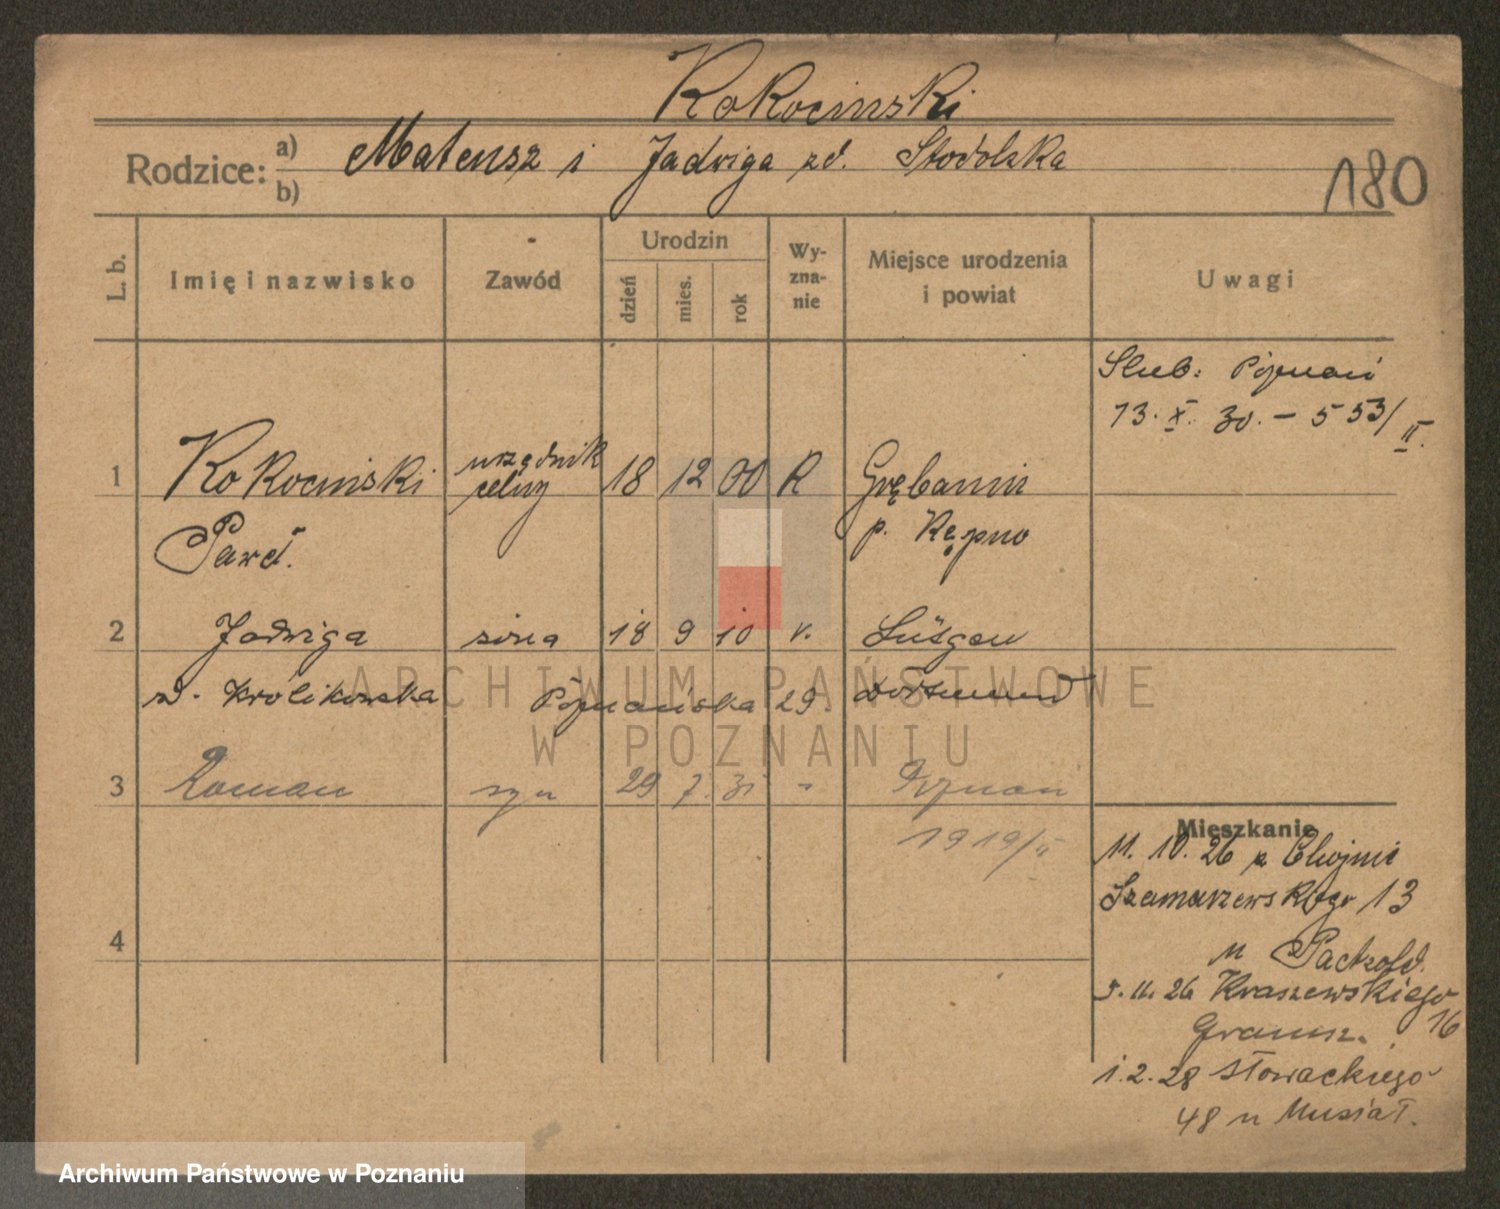 Kokocinski
Rodzice: a) b) Mateusz i Jadwiga zd. Stodolska
180
L. b.
Imię i nazwisko
Zawód
Urodzin
dzień
mies.
rok
Wy-
zna-
nie
Miejsce urodzenia
i powiat
Uwagi
Slub: Poznań
13. X. 30. – 553/II.
1 Kokocinski urzędnik celny 18 12 00 R Grębanin
Paweł. p. Kępno
2 Jadwiga żona 18 9 10 r. Lütgen
zd. Królikowska Poznańska 29. Dortmund
3 Roman syn 29 7. 31 " Poznań
1919/II
4
Mieszkanie
11. 10. 26 z Chojnic
Szamarzewskiego 13
u Paetzold.
5. 11. 26 Kraszewskiego
16
1. 2. 28 Słowackiego
48 u Musiał.
ARCHIWUM PAŃSTWOWE
W POZNANIU
Archiwum Państwowe w Poznaniu